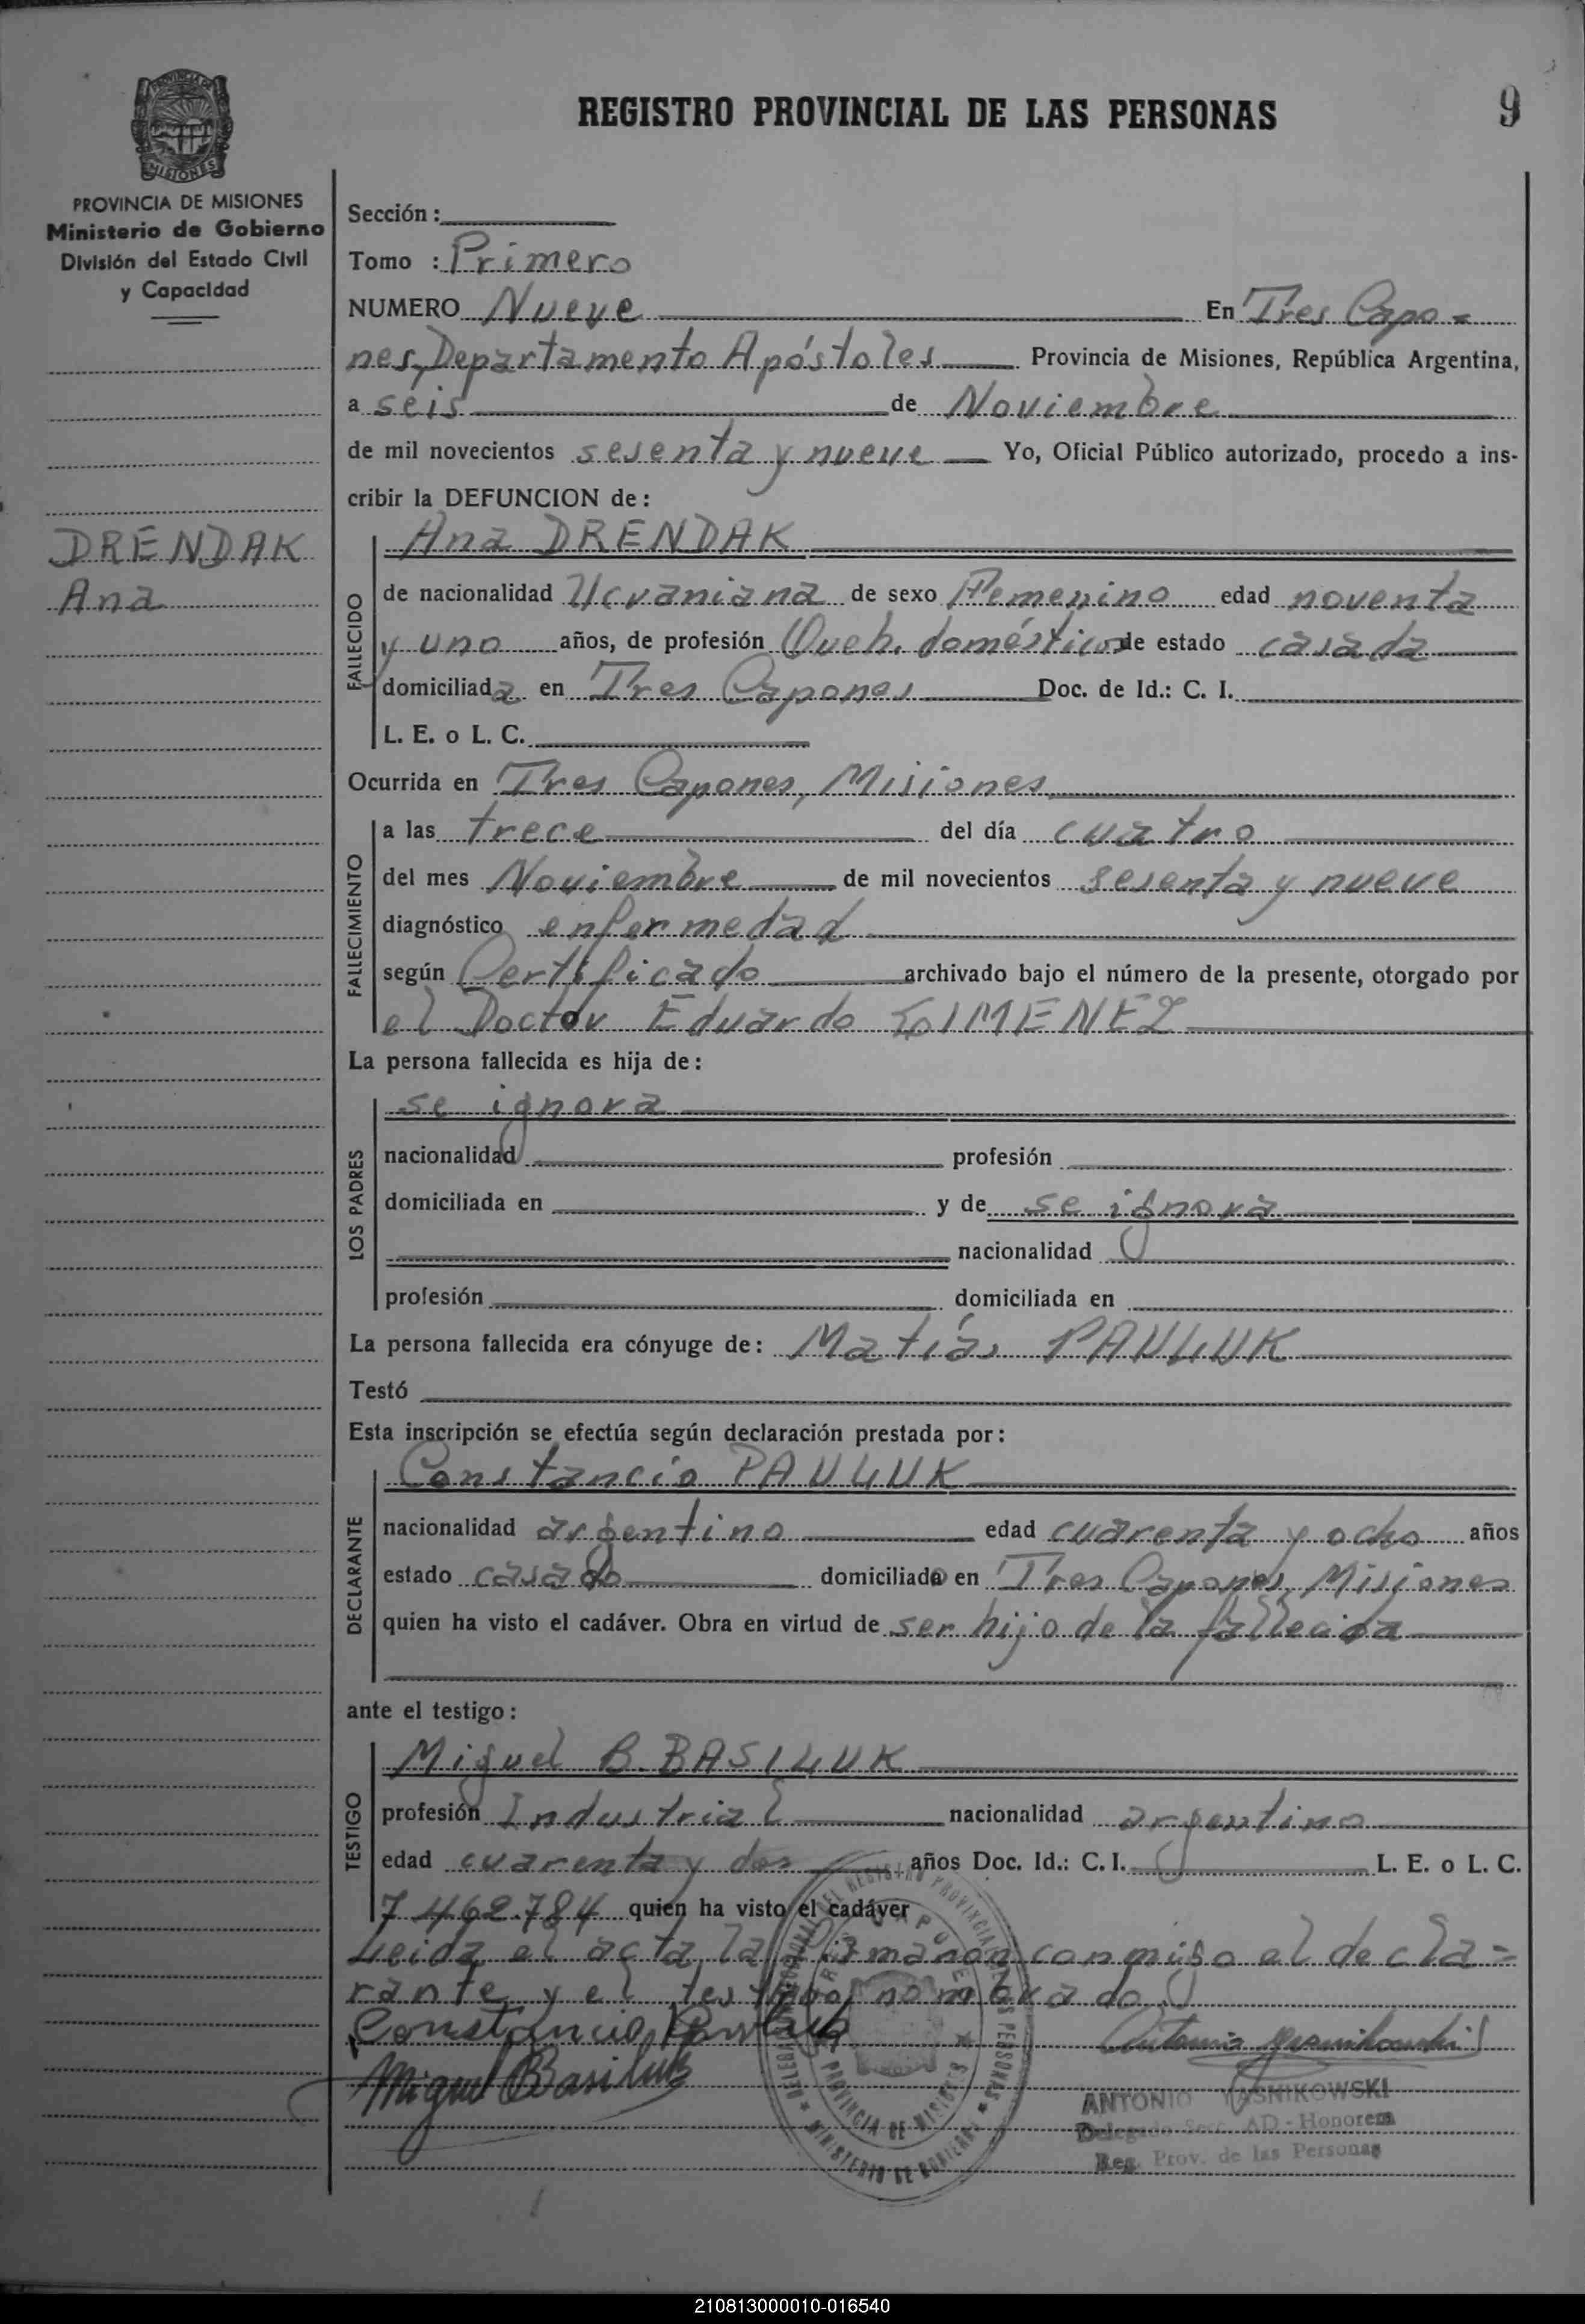 REGISTRO PROVINCIAL DE LAS PERSONAS
9
MISIONES
PROVINCIA DE MISIONES
Ministerio de Gobierno
División del Estado Civil
y Capacidad
DRENDAK
Ana
Sección:
Tomo : Primero
NUMERO Nueve En Tres Capo=
nes, Departamento Apóstoles Provincia de Misiones, República Argentina,
a seis de Noviembre
de mil novecientos sesenta y nueve Yo, Oficial Público autorizado, procedo a ins-
cribir la DEFUNCION de:
FALLECIDO
Ana DRENDAK
de nacionalidad Ucraniana de sexo Femenino edad noventa
y uno años, de profesión Queh. domésticos de estado casada
domiciliada en Tres Capones Doc. de Id.: C. I.
L. E. o L. C.
Ocurrida en Tres Capones, Misiones
FALLECIMIENTO
a las trece del día cuatro
del mes Noviembre de mil novecientos sesenta y nueve
diagnóstico enfermedad
según Certificado archivado bajo el número de la presente, otorgado por
el Doctor Eduardo GIMENEZ
La persona fallecida es hija de:
LOS PADRES
se ignora
nacionalidad profesión
domiciliada en y de se ignora
nacionalidad
profesión domiciliada en
La persona fallecida era cónyuge de: Matías PAULUK
Testó
Esta inscripción se efectúa según declaración prestada por:
DECLARANTE
Constancio PAULUK
nacionalidad argentino edad cuarenta y ocho años
estado casado domiciliado en Tres Capones, Misiones
quien ha visto el cadáver. Obra en virtud de ser hijo de la fallecida
ante el testigo:
TESTIGO
Miguel B. BASILUK
profesión Industrial nacionalidad argentino
edad cuarenta y dos años Doc. Id.: C. I. L. E. o L. C.
7.462.784 quien ha visto el cadáver
Leida el acta, la firmaron conmigo el decla=
rante y el testigo nombrado.
Constancio Pauluk
Miguel Basiluk
ANTONIO YASNIKOWSKI
Delegado Secc. AD-Honorem
Reg. Prov. de las Personas
PROVINCIA DE MISIONES
210813000010-016540